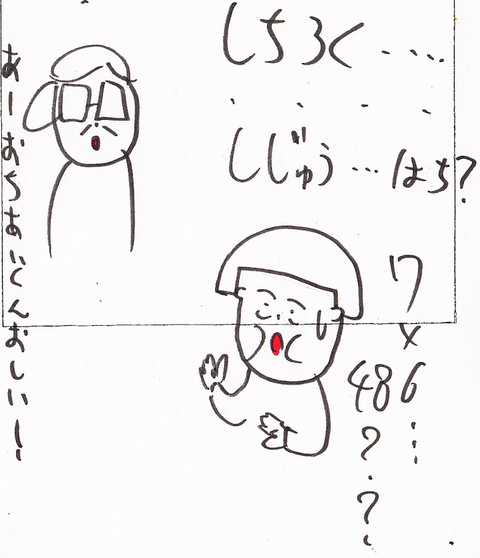 しちろく‥‥
しじゅう…はち?
7×6…
48??
あーおちあいくんおしいー!